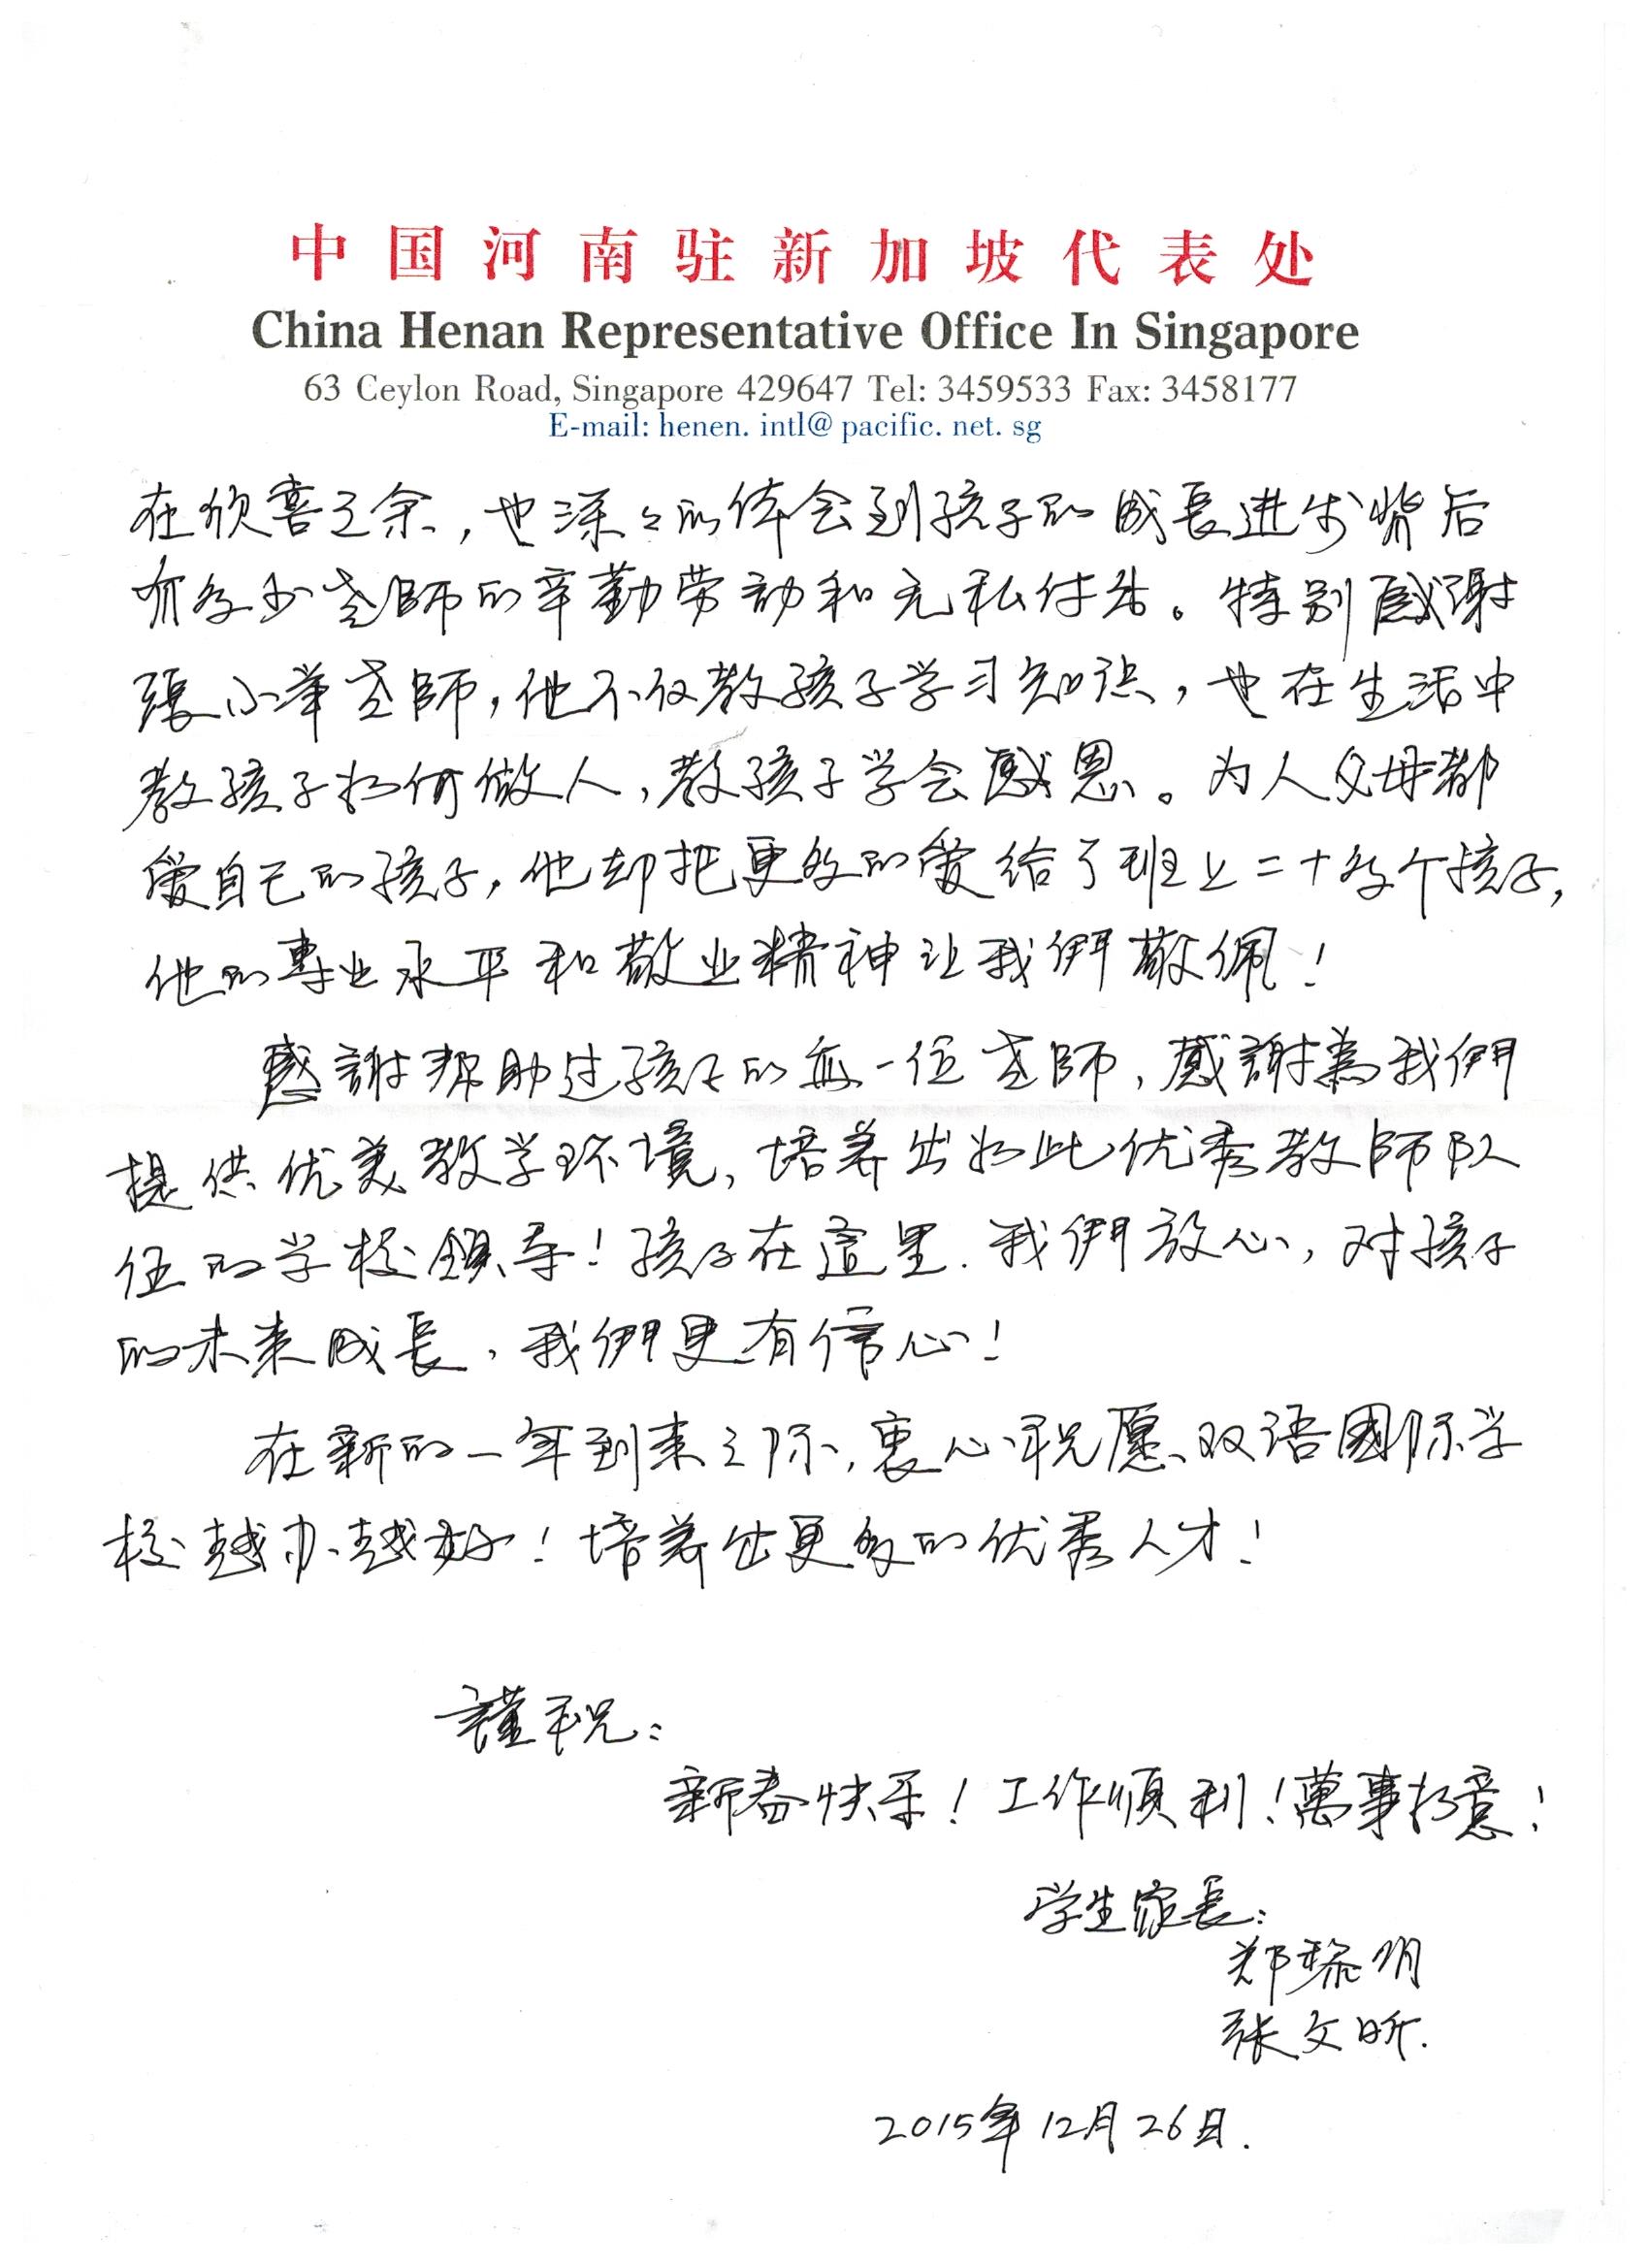 中国河南驻新加坡代表处
China Henan Representative Office In Singapore
63 Ceylon Road, Singapore 429647 Tel: 3459533 Fax: 3458177
E-mail: henen. intl@ pacific. net. sg
在欣喜之余，也深々的体会到孩子的成長进步背后
有多少老師的辛勤劳动和无私付出。特别感謝
張小举老師，他不仅教孩子学习知识，也在生活中
教孩子如何做人，教孩子学会感恩。为人父母都
爱自己的孩子，他却把更多的爱给了班上二十多个孩子，
他的專业水平和敬业精神让我們敬佩！
感謝帮助过孩子的每一位老師，感謝為我們
提供优美教学环境，培养出如此优秀教師队
伍的学校領导！孩子在這里.我們放心，对孩子
的未来成長，我們更有信心！
在新的一年到来之际，衷心祝愿双语國际学
校越办越好！培养出更多的优秀人才！
謹祝：
新春快乐！工作順利！萬事如意！
学生家長：
郑黎明
张文昕.
2015年12月26日.